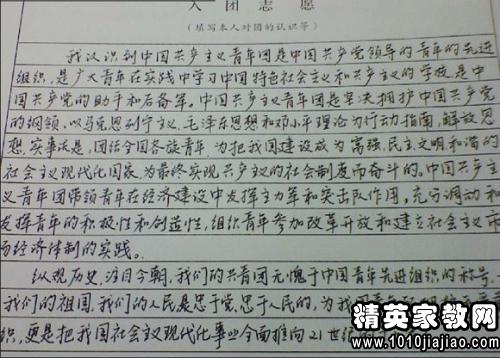 入团志愿
(填写本人对团的认识等)
我认识到中国共产主义青年团是中国共产党领导的青年的先进
组织,是广大青年在实践中学习中国特色社会主义和共产主义的学校,是中
国共产党的助手和后备军。中国共产主义青年团是坚决拥护中国共产党
的纲领,以马克思列宁主义、毛泽东思想和邓小平理论为行动指南,解放思
想,实事求是,团结全国各族青年,为把我国建设成为富强、民主文明和谐的
社会主义现代化国家,为最终实现共产主义的社会制度而奋斗的。中国共产主
义青年团带领青年在经济建设中发挥主力军和突击队作用,充分调动和
发挥青年的积极性和创造性,组织青年参加改革开放和建立社会主义市
场经济体制的实践。
纵观历史,注目今朝,我们的共青团无愧于中国青年先进组织的称号。
我们的祖国,我们的人民是忠于党,忠于人民的,为我国
织,更是把我国社会主义现代化事业全面推向21世纪
精英家教网
www.1010jiajiao.com